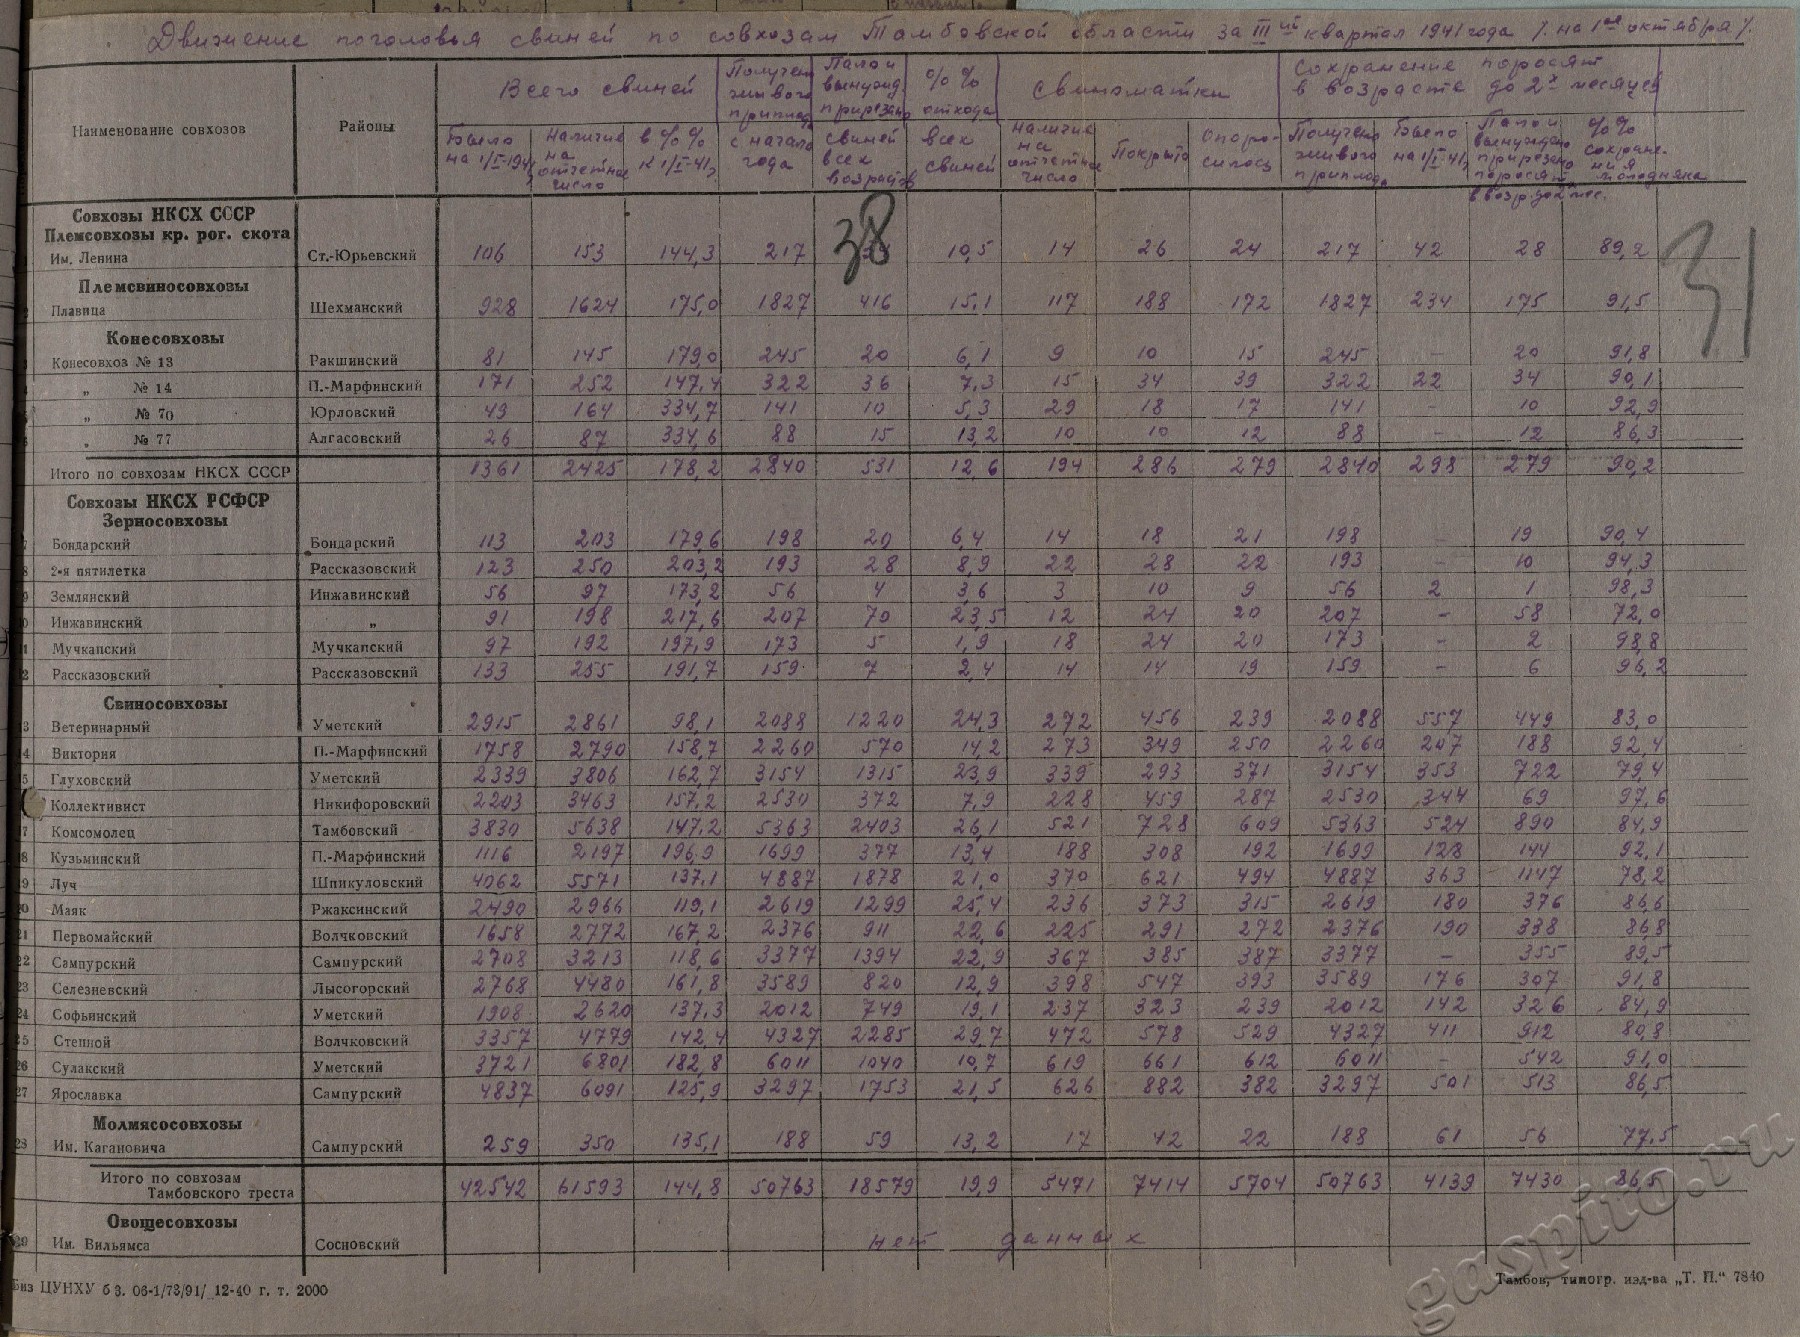 Движение поголовья свиней по совхозам Тамбовской области за III ий квартал 1941 года /. на 1ое октября /.
Наименование совхозов Районы Всего свиней Получено живого приплода с начала года Пало и вынужд. прирезано свиней всех возрастов %% отхода всех свиней Свиноматки Сохранение поросят в возрасте до 2х месяцев
Было на 1/I-1941 Наличие на отчетное число в %% к 1/I-41г. Наличие на отчетное число Покрыто Опоросилось Получено живого приплода Было на 1/I-41г. Пало и вынуждено прирезано поросят в возр. до 2х мес. %% сохранения молодняка
Совхозы НКСХ СССР
Племсовхозы кр. рог. скота
38
31
Им. Ленина Ст.-Юрьевский 106 153 144,3 217 10,5 14 26 24 217 42 28 89,2
Племсвиносовхозы
Плавица Шехманский 928 1624 175,0 1827 416 15,1 117 188 172 1827 234 175 91,5
Конесовхозы
Конесовхоз № 13 Ракшинский 81 145 179,0 245 20 6,1 9 10 15 245 – 20 91,8
„ № 14 П.-Марфинский 171 252 147,4 322 36 7,3 15 34 39 322 22 34 90,1
„ № 70 Юрловский 49 164 334,7 141 10 5,3 29 18 17 141 – 10 92,9
„ № 77 Алгасовский 26 87 334,6 88 15 13,2 10 10 12 88 – 12 86,3
Итого по совхозам НКСХ СССР 1361 2425 178,2 2840 531 12,6 194 286 279 2840 298 279 90,2
Совхозы НКСХ РСФСР
Зерносовхозы
7 Бондарский Бондарский 113 203 179,6 198 20 6,4 14 18 21 198 – 19 90,4
8 2-я пятилетка Рассказовский 123 250 203,2 193 28 8,9 22 28 22 193 – 10 94,3
9 Землянский Инжавинский 56 97 173,2 56 4 3,6 3 10 9 56 2 1 98,3
10 Инжавинский „ 91 198 217,6 207 70 23,5 12 24 20 207 – 58 72,0
11 Мучкапский Мучкапский 97 192 197,9 173 5 1,9 18 24 20 173 – 2 98,8
12 Рассказовский Рассказовский 133 255 191,7 159 7 2,4 14 14 19 159 – 6 96,2
Свиносовхозы
13 Ветеринарный Уметский 2915 2861 98,1 2088 1220 24,3 272 456 239 2088 557 449 83,0
14 Виктория П.-Марфинский 1758 2790 158,7 2260 570 14,2 273 349 250 2260 207 188 92,4
15 Глуховский Уметский 2339 3806 162,7 3154 1315 23,9 339 293 371 3154 353 722 79,4
Коллективист Никифоровский 2203 3463 157,2 2530 372 7,9 228 459 287 2530 344 69 97,6
17 Комсомолец Тамбовский 3830 5638 147,2 5363 2403 26,1 521 728 609 5363 524 890 84,9
18 Кузьминский П.-Марфинский 1116 2197 196,9 1699 377 13,4 188 308 192 1699 128 144 92,1
19 Луч Шпикуловский 4062 5571 137,1 4887 1878 21,0 370 621 494 4887 363 1147 78,2
20 Маяк Ржаксинский 2490 2966 119,1 2619 1299 25,4 236 373 315 2619 180 376 86,6
21 Первомайский Волчковский 1658 2772 167,2 2376 911 22,6 225 291 272 2376 190 338 86,8
22 Сампурский Сампурский 2708 3213 118,6 3377 1394 22,9 367 385 387 3377 – 355 89,5
23 Селезневский Лысогорский 2768 4480 161,8 3589 820 12,9 398 547 393 3589 176 307 91,8
24 Софьинский Уметский 1908 2620 137,3 2012 749 19,1 237 323 239 2012 142 326 84,9
25 Степной Волчковский 3357 4779 142,4 4327 2285 29,7 472 578 529 4327 411 912 80,8
26 Сулакский Уметский 3721 6801 182,8 6011 1040 10,7 619 661 612 6011 – 542 91,0
27 Ярославка Сампурский 4837 6091 125,9 3297 1753 21,5 626 882 382 3297 501 513 86,5
Молмясосовхозы
28 Им. Кагановича Сампурский 259 350 135,1 188 59 13,2 17 42 22 188 61 56 77,5
Итого по совхозам
Тамбовского треста 42542 61593 144,8 50763 18579 19,9 5471 7414 5704 50763 4139 7430 86,5
Овощесовхозы
29 Им. Вильямса Сосновский нет данных
Биз ЦУНХУ б 3. 06-1/73/91/ 12-40 г. т. 2000
Тамбов, типогр. изд-ва „Т. П.“ 7840
gaspito.ru